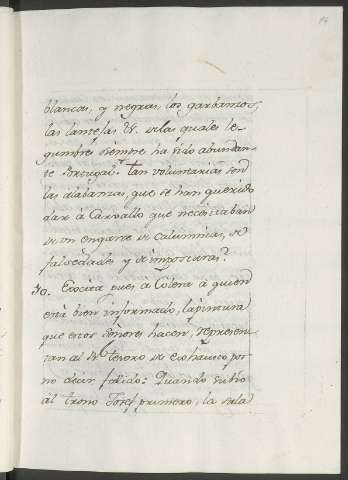 blancos, y negras, los garbanzos,
las lantejas &. de las quales le-
gumbres siempre ha sido abundan-
te Portugal. tan voluntarias son
las alabanzas, que se han querido
dar à Carvallo que necesitaban
de un engarze de calumnias, de
falsedades y de imposturas.
30. Excita pues à Colera à quien
està bien informado, la pintura
que estos señores hacen, represen-
tan al Rl. tesoro de exhausto por
no decir fallido: Quando subio
al trono Josef primero, la sola